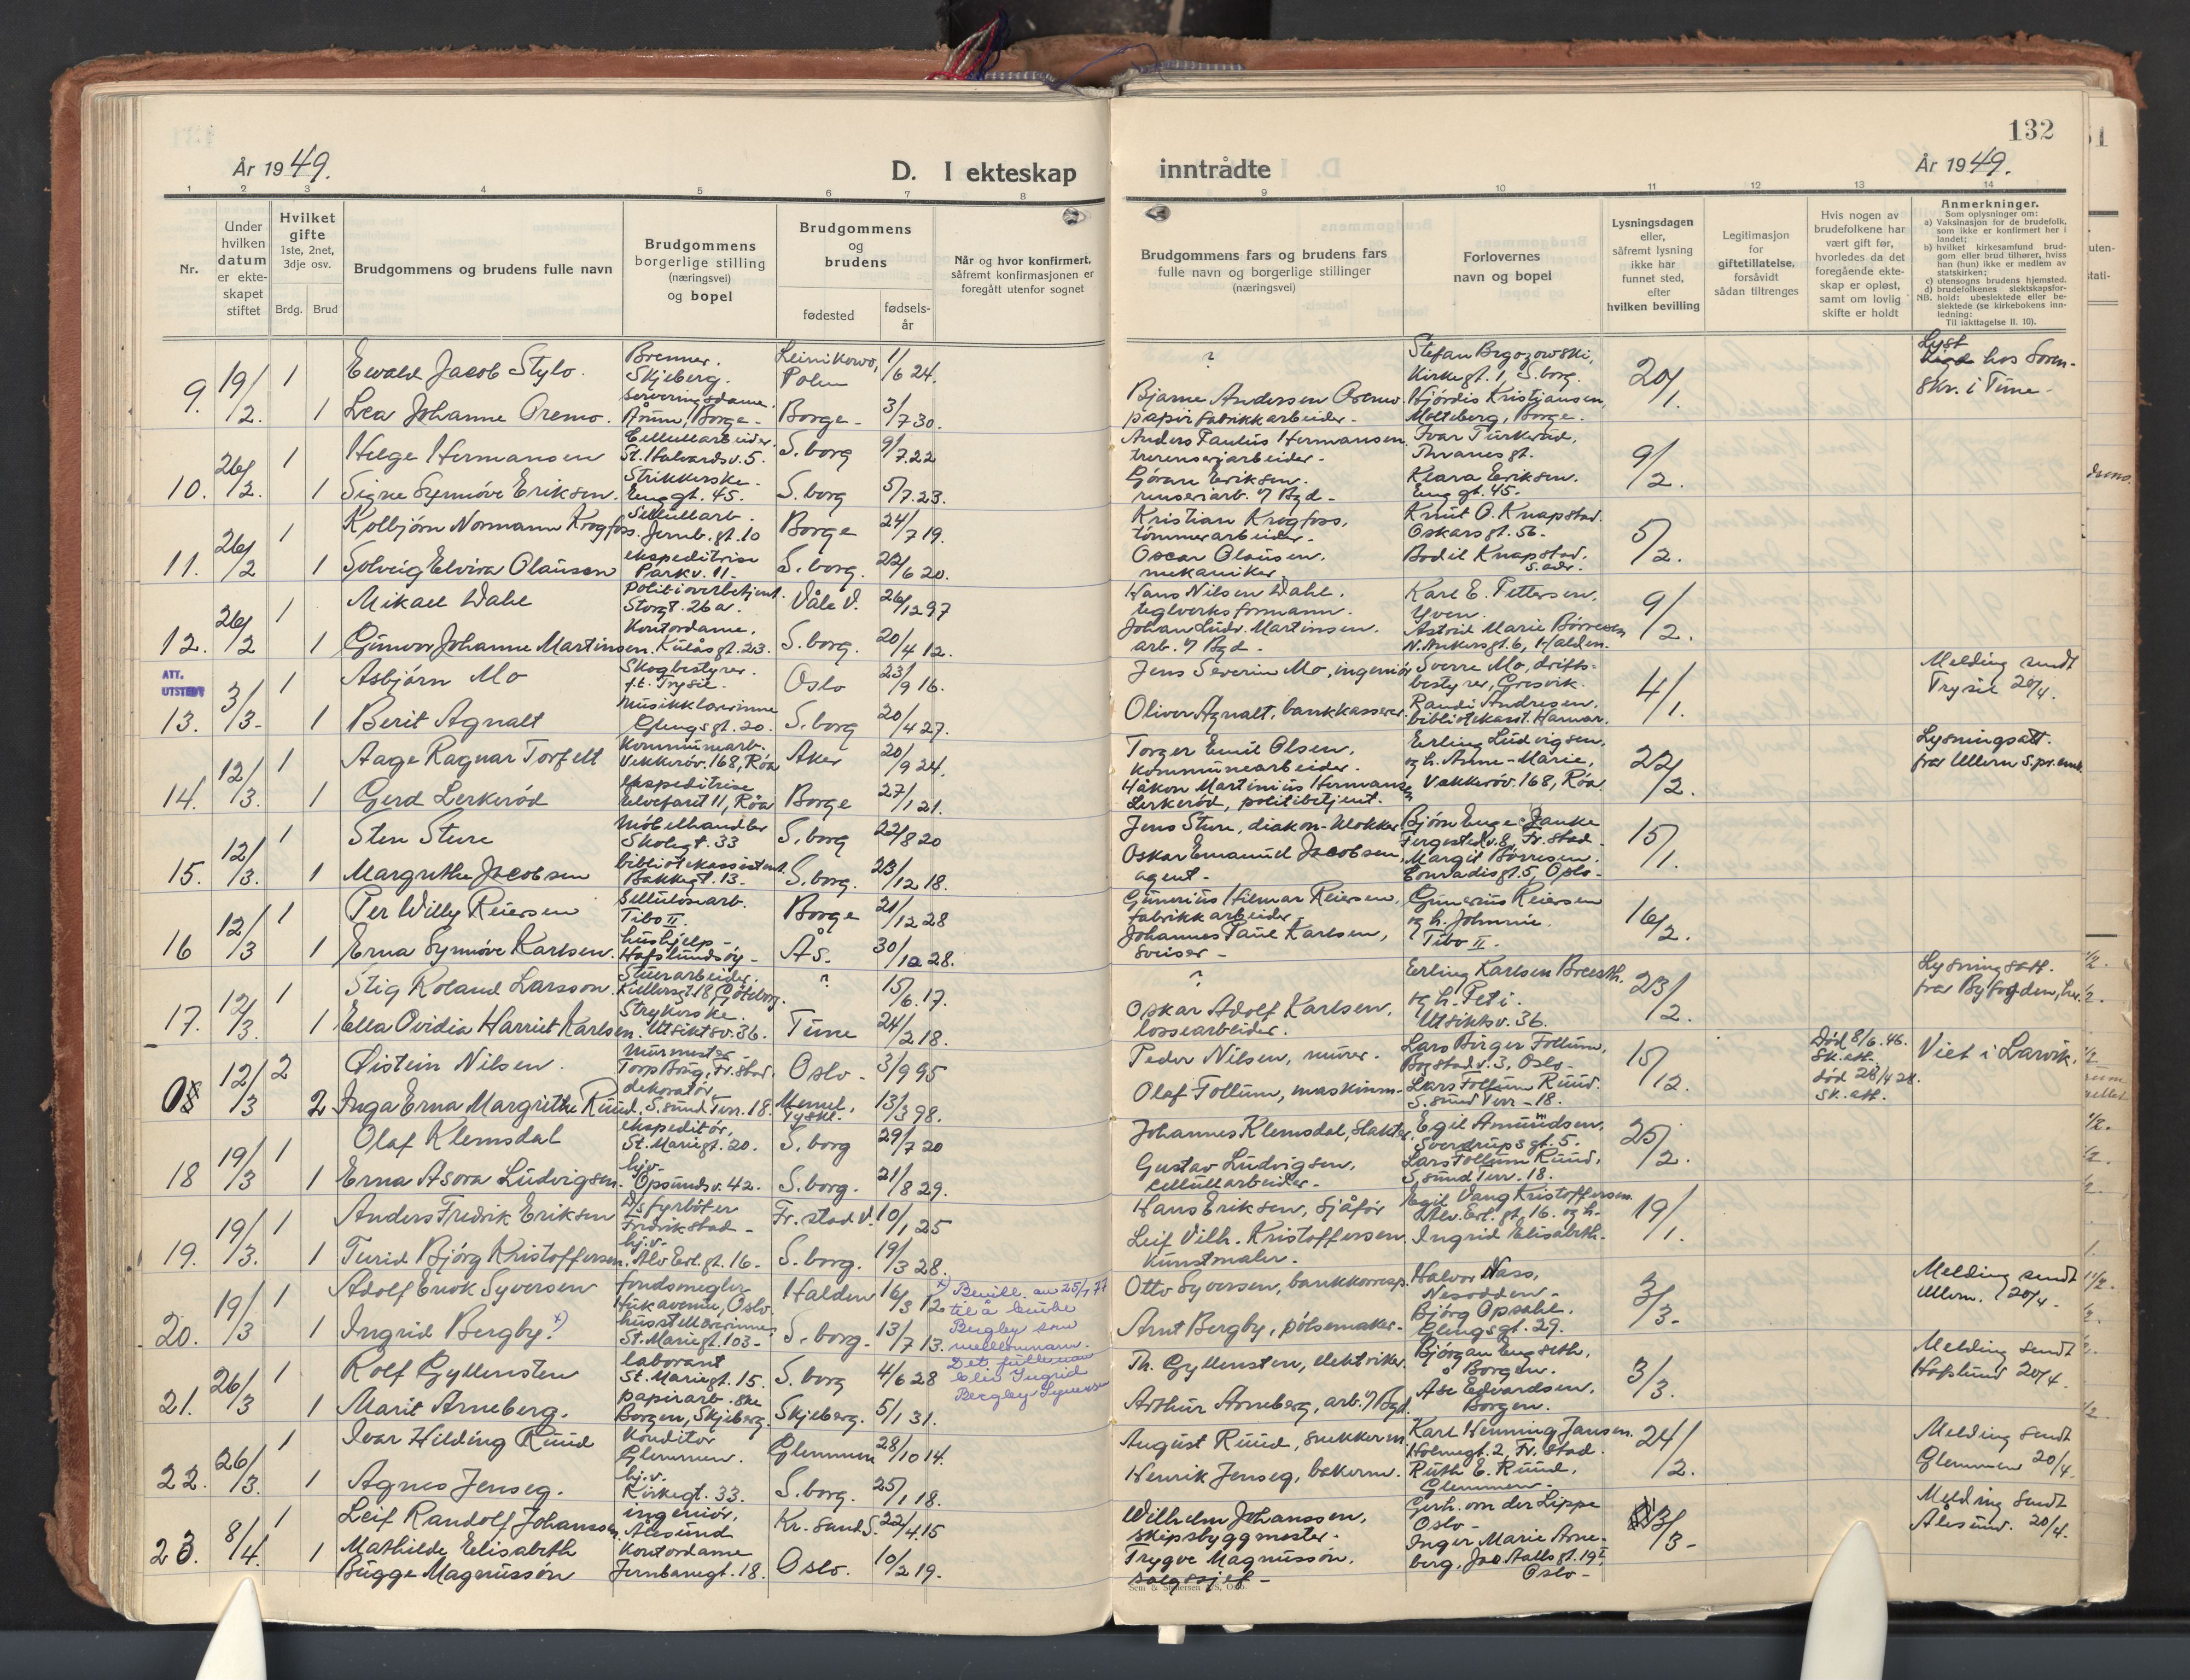 132
År 1949.
D. I ekteskap
inntrådte
År 1949.
1 2 3 4 5 6 7 8 9 10 11 12 13 14
Nr.
Under hvilken datum er ekteskapet stiftet
Hvilket gifte
1ste, 2net, 3dje osv.
Brdg. Brud
Brudgommens og brudens fulle navn
Brudgommens borgerlige stilling (næringsvei) og bopel
Brudgommens og brudens
fødested
fødsels-år
Når og hvor konfirmert, såfremt konfirmasjonen er foregått utenfor sognet
Brudgommens fars og brudens fars fulle navn og borgerlige stillinger (næringsvei)
Forlovernes navn og bopel
Lysningsdagen eller, såfremt lysning ikke har funnet sted, efter hvilken bevilling
Legitimasjon for giftetillatelse, forsåvidt sådan tiltrenges
Hvis nogen av brudefolkene har vært gift før, hvorledes da det foregående ekteskap er opløst, samt om lovlig skifte er holdt
Anmerkninger.
Som oplysninger om:
a) Vaksinasjon for de brudefolk, som ikke er konfirmert her i landet;
b) hvilket kirkesamfund brudgom eller brud tilhører, hviss han (hun) ikke er medlem av statskirken;
c) utensogns brudens hjemsted.
d) brudefolkenes slektskapsforhold: ubeslektede eller beslektede (se kirkebokens innledning:
NB. Til iakttagelse II. 10).
9. 19/2. 1 Ewald Jacob Stylo. Brenner. Skjeberg. Polen 1/6 24. ? Stefan Brgozowski, Kirkegt. 1, S.borg. 20/1. Lyst hos Sorenskr. i Tune.
1 Lea Johanne Oremo. Serveringsdame. Årum, Borge. Borge 3/7 30. Bjarne Andersen Oremo. papirfabrikkarbeider. Hjørdis Kristiansen, Moteberg, Borge.
10. 26/2. 1 Helge Hermansen Cellullarbeider. St. Halvardsv. 5. S.borg 9/7.22 Anders Paulus Hermansen. Ivar Turkerud, 9/2.
1 Signe Synnøve Eriksen. Strikkerske. Enggt. 45. S.borg 5/7.23. Gøran Eriksen. renseriarb. v/ Bgd. Klara Eriksen. Enggt. 45.
11. 26/2 1 Kolbjørn Normann Krogfoss. Sellullarb. Jernb.gt. 10 Borge 24/7 19. Kristian Krogfoss, tømmerarbeider. Knut O. Knapstad. Oskarsgt. 56. 5/2.
1 Solveig Elvira Olaussen ekspeditrise Parkv. 11. S.borg. 22/6 20. Oscar Olausen, mekaniker Bodil Knapstad. s. adr.
12. 26/2 1 Mikael Dahl Politioverbetjent. Storgt. 26a. Våle V. 26/12 97 Hans Nilsen Dahl, teglverksformann. Karl E. Pettersen, Yven. 9/2.
1 Gunvor Johanne Martinsen. Kontordame, Kulåsgt. 23. S.borg. 20/4 12. Johan Ludv. Martinsen. arb. v/ Bgd. Astrid Marie Børresen N. Ankersgt. 6, Halden.
ATT. UTSTEDT
13. 3/3 1 Asbjørn Mo Skogbestyrer. f.t. Trysil. Oslo 23/9 16. Jens Severin Mo, ingeniør Sverre Mo, driftsbestyrer, Gresvik. 4/1. Melding sendt Trysil 20/4.
1 Berit Agnalt Musikklærerinne Glengsgt. 20. S.borg 20/4 27. Oliver Agnalt, bankkasserer. Randi Andresen, bibliotekasst. Hamar.
14. 12/3. 1 Aage Ragnar Torfelt Kommunearb. Vækkerøv. 168, Røa Aker 20/9 24. Torger Emil Olsen, kommunearbeider. Erling Ludvigsen, og h. Anne-Marie, Vækkerøv. 168, Røa 22/2. Lysningsatt. fra Ullern s.pr.emb.
1 Gerd Lerkerød ekspeditrise Elvefaret 11, Røa Borge 27/1 21. Håkon Martinius Hermansen Lerkerød, politibetjent.
15. 12/3. 1 Sten Sture Møbelhandler Skolegt. 33 S.borg 22/8 20 Jens Sture, diakon-klokker Bjørn Enge Janke Fergestedv. 8, Fr.stad. 15/1.
1 Margrethe Jacobsen bibliotekassistent. Bakkegt. 13. S.borg. 23/12 18. Oskar Emanuel Jacobsen, agent. Margit Børresen. Conradisgt. 5, Oslo.
16 12/3 1 Per Willy Reiersen Sellulosearb. Tibo II. Borge 21/12 28 Gunerius Hilmar Reiersen, fabrikkarbeider. Gunerius Reiersen og h. Johanne. Tibo II. 16/2.
1 Erna Synnøve Karlsen. hushjelp. Hafslundsøy. Ås. 30/12 28. Johannes Paul Karlsen, sveiser.
17. 12/3. 1 Stig Roland Larsson. Stuerarbeider. Göteborg. ? 15/6.17. ? Erling Karlsen og h. Peti. Utsiktsv. 36. 23/2. Lysningsatt. fra Byfogden, her.
1 Ella Ovidia Harriet Karlsen. Strykerske. Utsiktsv. 36. Tune 24/2 18. Oskar Adolf Karlsen, lossearbeider.
12/3 2 Øistein Nilsen. Murmester Torp Brug, Fr.stad. Oslo 3/9 95 Peder Nilsen, murer. Lars Birger Follum, Bogstadv. 3, Oslo. 15/12. Død 8/6.46. Sk.att. Viet i Larvik.
2 Inga Erna Margrethe Ruud. dekoratør, S.sund Terr. 18. Memel, Tyskl. 13/3 98. Olaf Follum, maskinm. Lars Follum Ruud. S.sund Terr. 18. død 28/4 28. Sk.att.
18 19/3 1 Olaf Klemsdal ekspeditør, St. Mariegt. 20. S.borg 29/7 20 Johannes Klemsdal, slakter. Egil Amundsen, Sverdrupsgt. 5. 25/2.
1 Erna Asora Ludvigsen. hj.v. Opsundsv. 42. S.borg. 21/8 29. Gustav Ludvigsen, cellullarbeider. Lars Follum Ruud, S.sund Terr. 18.
19. 19/3. 1 Anders Fredrik Eriksen D/s fyrbøter Fredrikstad. Fr.stad V. 10/1 25 Hans Eriksen, sjåfør Egil Vang Kristoffersen. Alv. Erl. gt. 16. og h. Ingrid Elisabeth. 19/1.
1 Turid Bjørg Kristoffersen. hj.v. Alv Erl.gt. 16. S.borg. 19/3 28. Leif Vilh. Kristoffersen. Kunstmaler.
20. 19/3 1 Adolf Enok Syversen fondsmegler Huk avenue, Oslo. Halden 16/3 12 Otto Syversen, bankkorresp. Halvor Nass, Nesodden. 3/3. Melding sendt Ullern. 20/4.
1 Ingrid Bergby. x) husstellærerinne St. Mariegt. 103. S.borg. 13/7 13. Arnt Bergby, pølsemaker. Bjørg Opsahl. Glengsgt. 29.
x) Bevill. av 25/1 77 til å bruke Bergby som mellomnavn. Det fulle navn blir Ingrid Bergby Syversen
21. 26/3 1 Rolf Gyllensten laborant St. Mariegt. 15. S.borg 4/6 28 Th. Gyllensten, elektriker. Bjørgan Engseth, Borgen. 3/3. Melding sendt Hafslund 20/4.
1 Marit Arneberg. papirarb.ske Borgen, Skjeberg. Skjeberg. 5/1 31. Arthur Arneberg, arb. v/ Bgd. Ase Edvardsen, Borgen.
22. 26/3. 1 Ivar Hilding Ruud Konditor Glemmen. Glemmen 28/10 14. August Ruud, snekkerm. Karl Henning Jansen. Holmegt. 2, Fr.stad. 24/2. Melding sendt Glemmen 20/4.
1 Agnes Jenseg. hj.v. Kirkegt. 33. S.borg. 25/1 18. Henrik Jenseg, bakerm. Ruth E. Ruud, Glemmen.
23. 8/4. 1 Leif Randolf Johanssen. ingeniør, Ålesund Kr.sund S. 22/4 15 Wilhelm Johanssen, skipsbyggmester. Gerh. von der Lippe Oslo. 3/3. Melding sendt Ålesund. 20/4.
1 Mathilde Elisabeth Bugge Magnussøn Kontordame Jernbanegt. 18. Oslo. 10/2 19. Trygve Magnussøn, salgssjef. Inger Marie Arneberg, Jac Aallsgt. 19 I, Oslo.